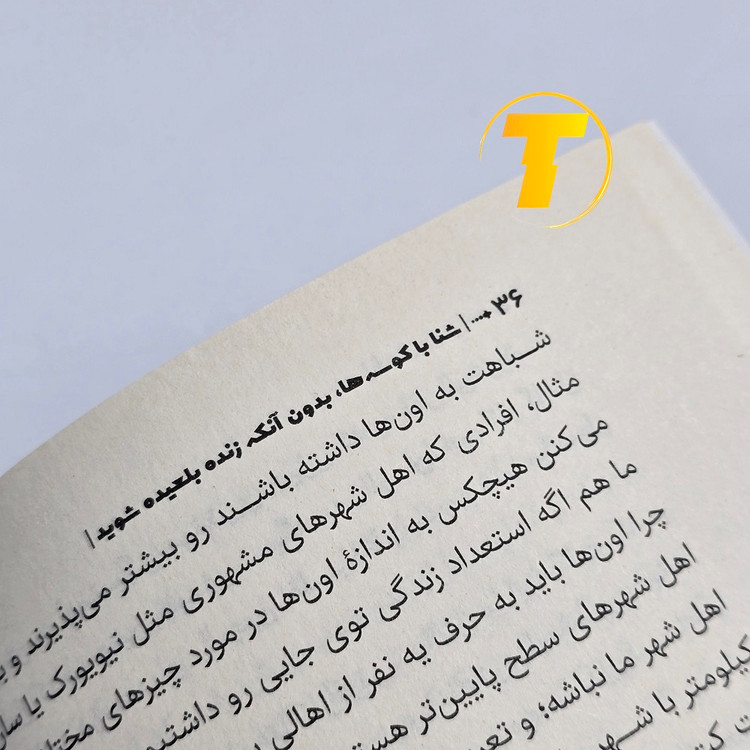 T
۳۶ | شنا با کوسه‌ها، بدون آنکه زنده بلعیده شوید |
شباهت به اون‌ها داشته باشند رو بیشتر می‌پذیرند و
مثال، افرادی که اهل شهرهای مشهوری مثل نیویورک یا
می‌کنن هیچکس به اندازهٔ اون‌ها در مورد چیزهای
ما هم اگه استعداد زندگی توی جایی رو
چرا اون‌ها باید به حرف یه نفر از اهالی
اهل شهرهای سطح پایین‌تر
اهل شهر ما نباشه؛ و
کیلومتر با